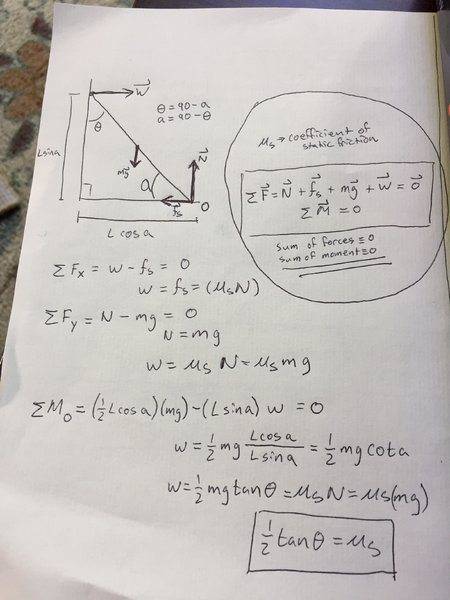 W⃗
θ = 90 - a
a = 90 - θ
θ
Lsina
mg⃗
N⃗
a
f⃗s
O
L cosa
μs → coefficient of
static friction
ΣF⃗ = N⃗ + f⃗s + mg⃗ + w⃗ = 0⃗
ΣM⃗ = 0
sum of forces = 0
sum of moment = 0
ΣFx = w - fs = 0
w = fs = (μsN)
ΣFy = N - mg = 0
N = mg
w = μs N = μs mg
ΣMo = (1/2 Lcosa)(mg) - (Lsina) w = 0
w = 1/2 mg Lcosa/Lsina = 1/2 mg cota
w = 1/2 mg tanθ = μsN = μs(mg)
1/2 tanθ = μs